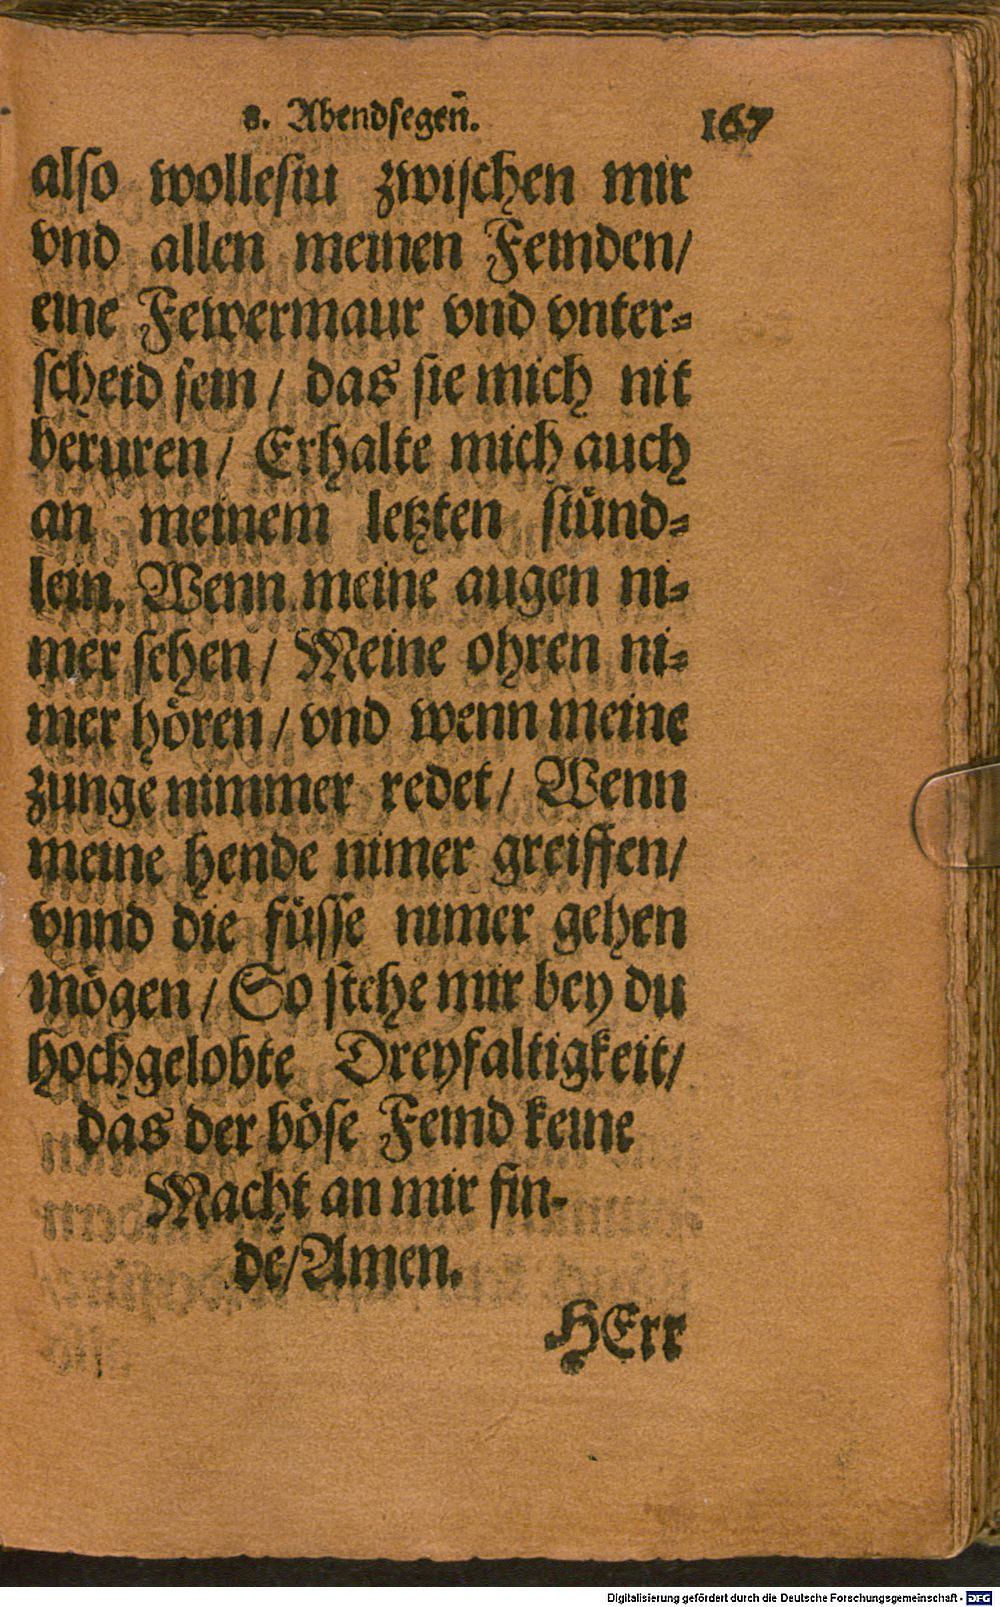 8. Abendsegen̄. 167
also wollestu zwischen mir
vnd allen meinen Feinden/
eine Fewermaur vnd vnter=
scheid sein / das sie mich nit
beruren / Erhalte mich auch
an meinem letzten stünd=
lein. Wenn meine augen ni=
mer sehen / Meine ohren ni=
mer hören / vnd wenn meine
zunge nimmer redet / Wenn
meine hende nimer greiffen/
vnnd die füsse nimer gehen
mögen / So stehe mir bey du
hochgelobte Dreyfaltigkeit/
das der böse Feind keine
Macht an mir fin-
de/Amen.
HErr
Digitalisierung gefördert durch die Deutsche Forschungsgemeinschaft - DFG